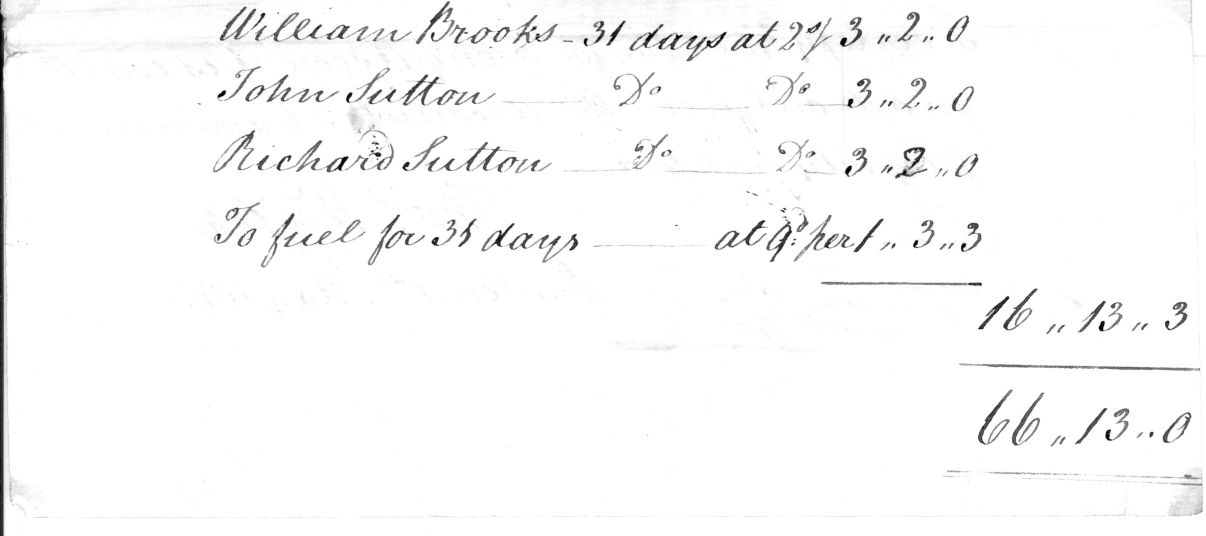 William Brooks - 31 days at 2s/ 3 „ 2 „ 0
John Sutton — Do — Do — 3 „ 2 „ 0
Richard Sutton — Do — Do — 3 „ 2 „ 0
To fuel for 31 days — at 9d per 1 „ 3 „ 3
16 „ 13 „ 3
66 „ 13 „ 0